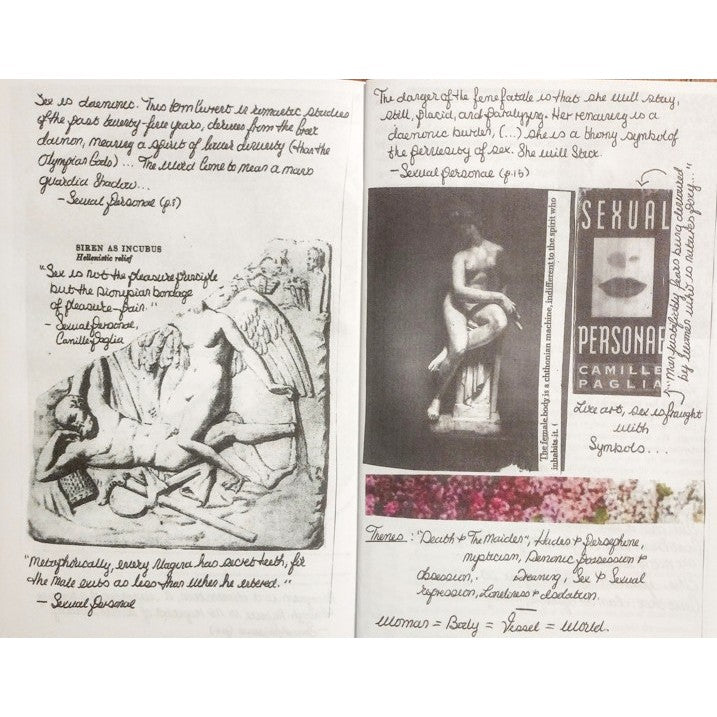 Sex is daemonic. This term, current in romantic studies
of the past twenty-five years, derives from the Greek
daimon, meaning a spirit of lower divinity (than the
Olympian Gods) ... The word came to mean a mans
guardia shadow...
- Sexual Personae (p.3)
SIREN AS INCUBUS
Hellenistic relief
"Sex is not the pleasure principle
but the Dionysian bondage
of pleasure-pain."
- Sexual Personae,
Camille Paglia
"Metaphorically, every vagina has secret teeth, for
the male exits as less than when he entered."
- Sexual Personae
The danger of the femme fatale is that she will stay,
still, placid, and paralyzing. Her remaining is a
daemonic burden, (...) she is a thorny symbol of
the perversity of sex. She will stick.
- Sexual Personae (p.15)
The female body is a chthonian machine, indifferent to the spirit who
inhabits it. (
SEXUAL
PERSONAE
CAMILLE
PAGLIA
"...Men justifiably fears being devoured
by woman who is natures proxy..."
Like art, sex is fraught
with
Symbols...
Themes: "Death & The Maiden", Hades & Persephone,
mysticism, Demonic Possession &
obsession, Dreaming, Sex & Sexual
repression, Loneliness & isolation.
Woman = Body = Vessel = World.